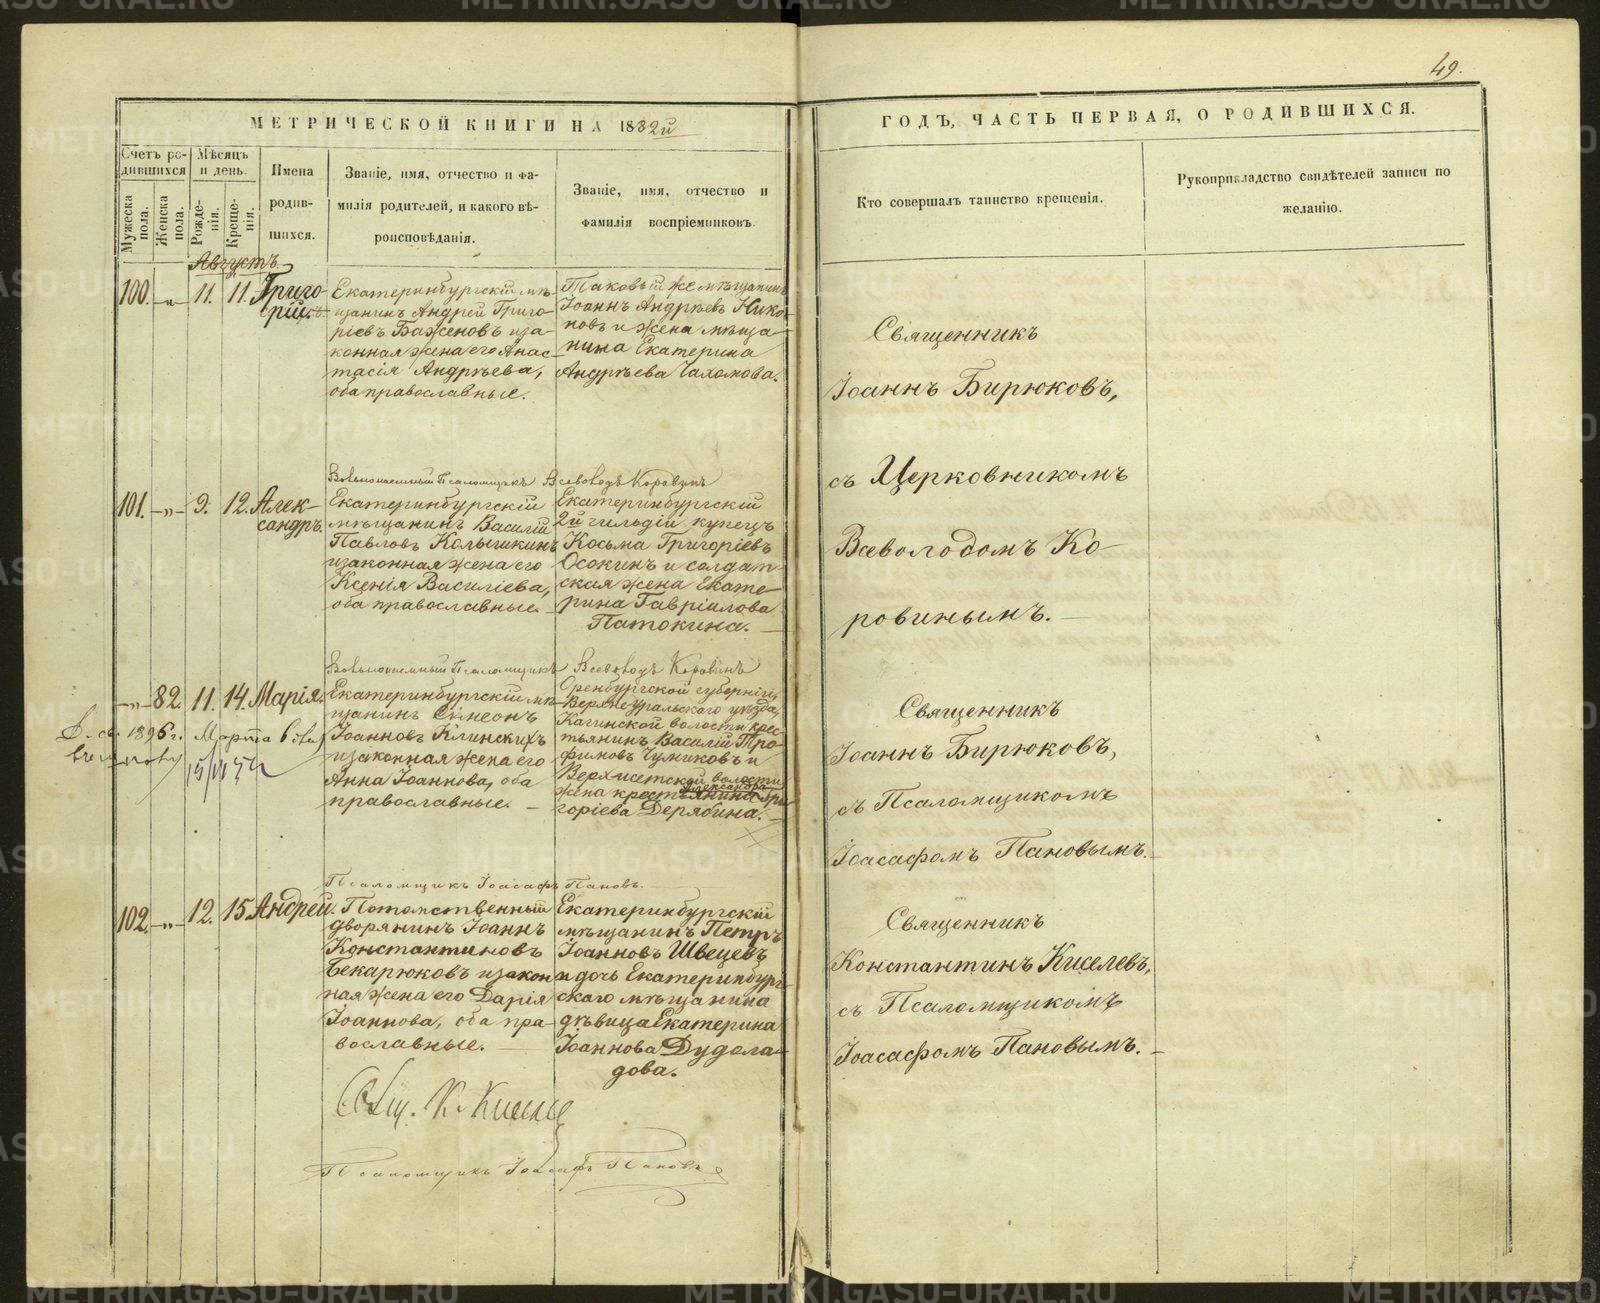 49.
МЕТРИЧЕСКОЙ КНИГИ НА 1882й
ГОДЪ, ЧАСТЬ ПЕРВАЯ, О РОДИВШИХСЯ.
Счетъ ро-
дившихся
Мужеска пола.
Женска пола.
Мѣсяцъ
и день.
Рожде-
нія.
Креще-
нія.
Имена
родив-
шихся.
Званіе, имя, отчество и фа-
милія родителей, и какого вѣ-
роисповѣданія.
Званіе, имя, отчество и
фамилія воспріемниковъ.
Кто совершалъ таинство крещенія.
Рукоприкладство свидѣтелей записи по
желанію.
Августъ
100. -„- 11. 11. Григо-
рій.
Екатеринбургскій мѣ-
щанинъ Андрей Григо-
ріевъ Баженовъ и за-
конная жена его Анас-
тасія Андрѣева,
оба православные.
Таковый же мѣщанинъ
Іоаннъ Андрѣевъ Нико-
новъ и жена мѣща-
нина Екатерина
Андрѣева Чахомова.
Священникъ
Іоаннъ Бирюковъ,
съ Церковникомъ
Всеволодомъ Ко-
ровинымъ. —
Вольнонаемный Псаломщикъ Всеволодъ Коровинъ
101. -„- 9. 12. Алек-
сандръ.
Екатеринбургскій
мѣщанинъ Василій
Павловъ Колышкинъ
и законная жена его
Ксенія Василіева,
оба православные. —
Екатеринбургскій
2й гильдіи купецъ
Косьма Григоріевъ
Осокинъ и солдат-
ская жена Екате-
рина Гавріилова
Патокина. —
Вольнонаемный Псаломщикъ Всеволодъ Коровинъ
-„- 82. 11. 14. Марія.
1896 г. Марта 6
Екатеринбургскій мѣ-
щанинъ Симеонъ
Іоанновъ Клинскихъ
и законная жена его
Анна Іоаннова, оба
православные. —
Оренбургской губерніи,
Верхнеуральскаго уѣзда,
Кагинской волости крес-
тьянинъ Василій Тро-
фимовъ Чумиковъ и
Верхисетской волости
жена крестьянина Александра Гри-
горіева Дерябина. —
Священникъ
Іоаннъ Бирюковъ,
съ Псаломщикомъ
Іоасафомъ Пановымъ. —
Псаломщикъ Іоасафъ Пановъ.
102. -„- 12. 15. Андрей.
Потомственный
дворянинъ Іоаннъ
Константиновъ
Бекарюковъ и закон-
ная жена его Дарія
Іоаннова, оба пра-
вославные. —
Екатеринбургскій
мѣщанинъ Петръ
Іоанновъ Швецевъ
и дочь Екатеринбург-
скаго мѣщанина
дѣвица Екатерина
Іоаннова Дудола-
дова.
Священникъ
Константинъ Киселевъ,
съ Псаломщикомъ
Іоасафомъ Пановымъ. —
Свящ. К. Киселевъ
Псаломщикъ Іоасафъ Пановъ
METRIKI.GASO-URAL.RU